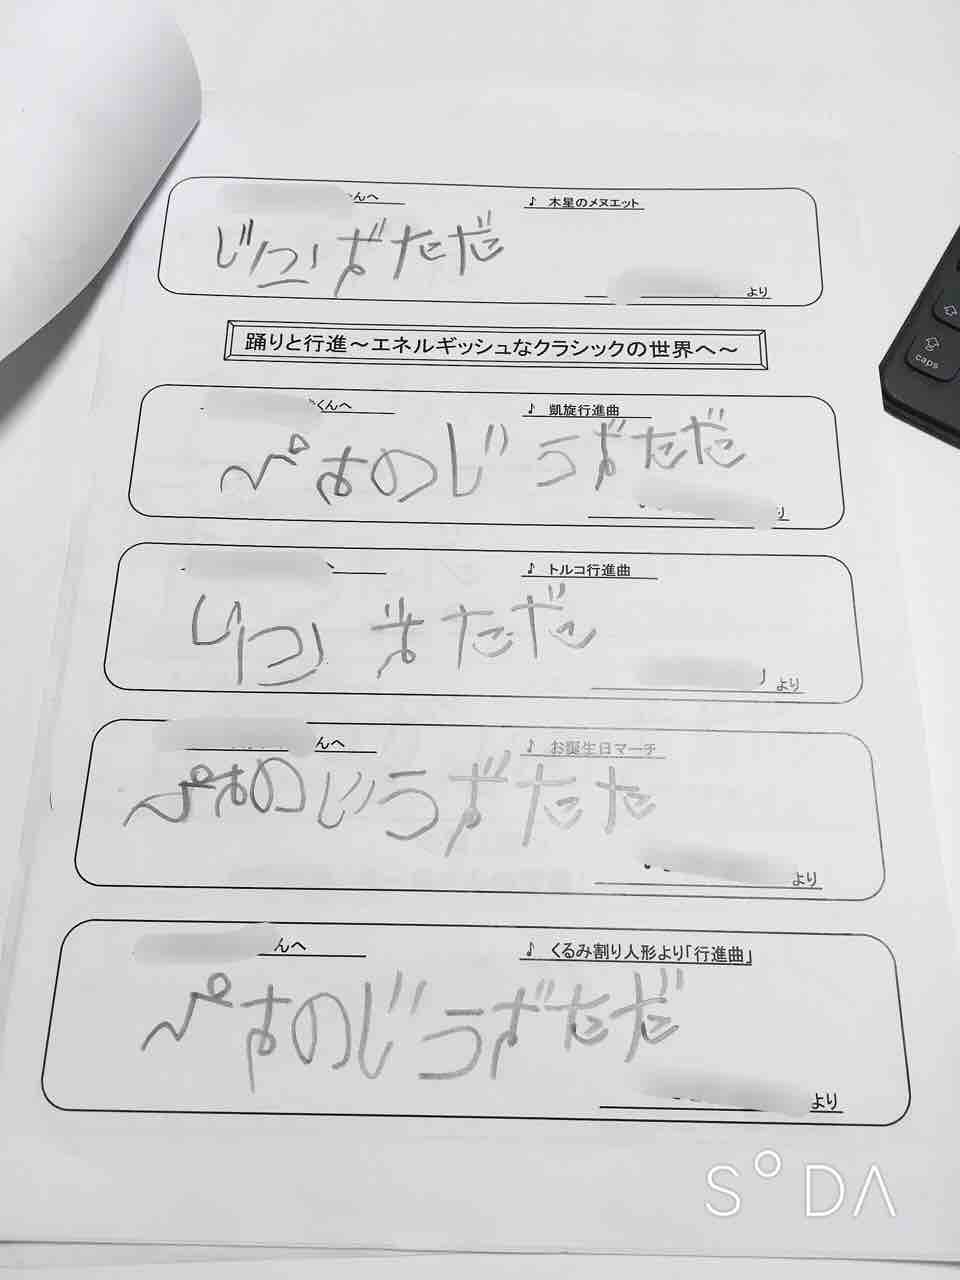 んへ
♪ 木星のメヌエット
より
踊りと行進～エネルギッシュなクラシックの世界へ～
くんへ
♪ 凱旋行進曲
ぺすのじうずただ
り
♪ トルコ行進曲
より
んへ
♪ お誕生日マーチ
ぺすのじうずただ
より
んへ
♪ くるみ割り人形より「行進曲」
ぺすのじうずただ
より
caps
SODA